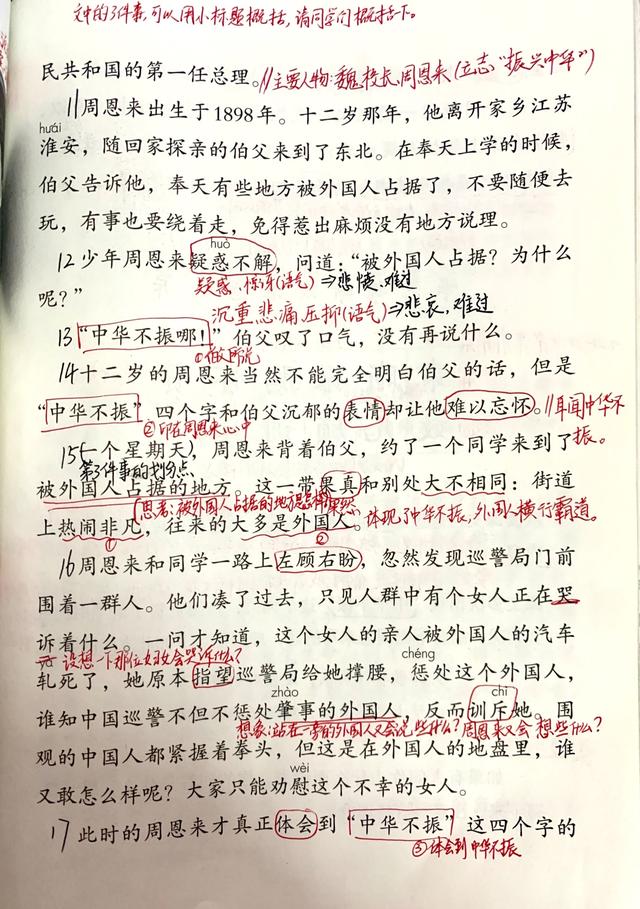 文中的3件事,可以用小标题概括,请同学们概括一下。
民共和国的第一任总理。//主要人物:魏校长、周恩来(立志“振兴中华”)
11周恩来出生于1898年。十二岁那年,他离开家乡江苏
huái
淮安,随回家探亲的伯父来到了东北。在奉天上学的时候,
伯父告诉他,奉天有些地方被外国人占据了,不要随便去
玩,有事也要绕着走,免得惹出麻烦没有地方说理。
huò
12少年周恩来疑惑不解,问道:“被外国人占据?为什么
呢?” 疑惑、惊讶(语气)⇒悲愤、难过
沉重悲痛、压抑(语气)⇒悲哀、难过
13“中华不振哪!”伯父叹了口气,没有再说什么。
①伯父所说
14十二岁的周恩来当然不能完全明白伯父的话,但是
“中华不振”四个字和伯父沉郁的表情却让他难以忘怀。//耳闻中华不振。
②印在周恩来心中
15一个星期天,周恩来背着伯父,约了一个同学来到了
第3件事的划分点
被外国人占据的地方。这一带果真和别处大不相同:街道
思考:被外国人占据的地方是怎样 果然
上热闹非凡,往来的大多是外国人。体现了中华不振,外国人横行霸道。
① ②
16周恩来和同学一路上左顾右盼,忽然发现巡警局门前
围着一群人。他们凑了过去,只见人群中有个女人正在哭
诉着什么。一问才知道,这个女人的亲人被外国人的汽车
设想一下那位妇女会哭诉什么?
chéng
轧死了,她原本指望巡警局给她撑腰,惩处这个外国人,
zhào chì
谁知中国巡警不但不惩处肇事的外国人,反而训斥她。围
想象:站在一旁的外国人又会说些什么?周恩来又会想些什么?
观的中国人都紧握着拳头,但这是在外国人的地盘里,谁
wèi
又敢怎么样呢?大家只能劝慰这个不幸的女人。
17此时的周恩来才真正体会到“中华不振”这四个字的
③体会到中华不振